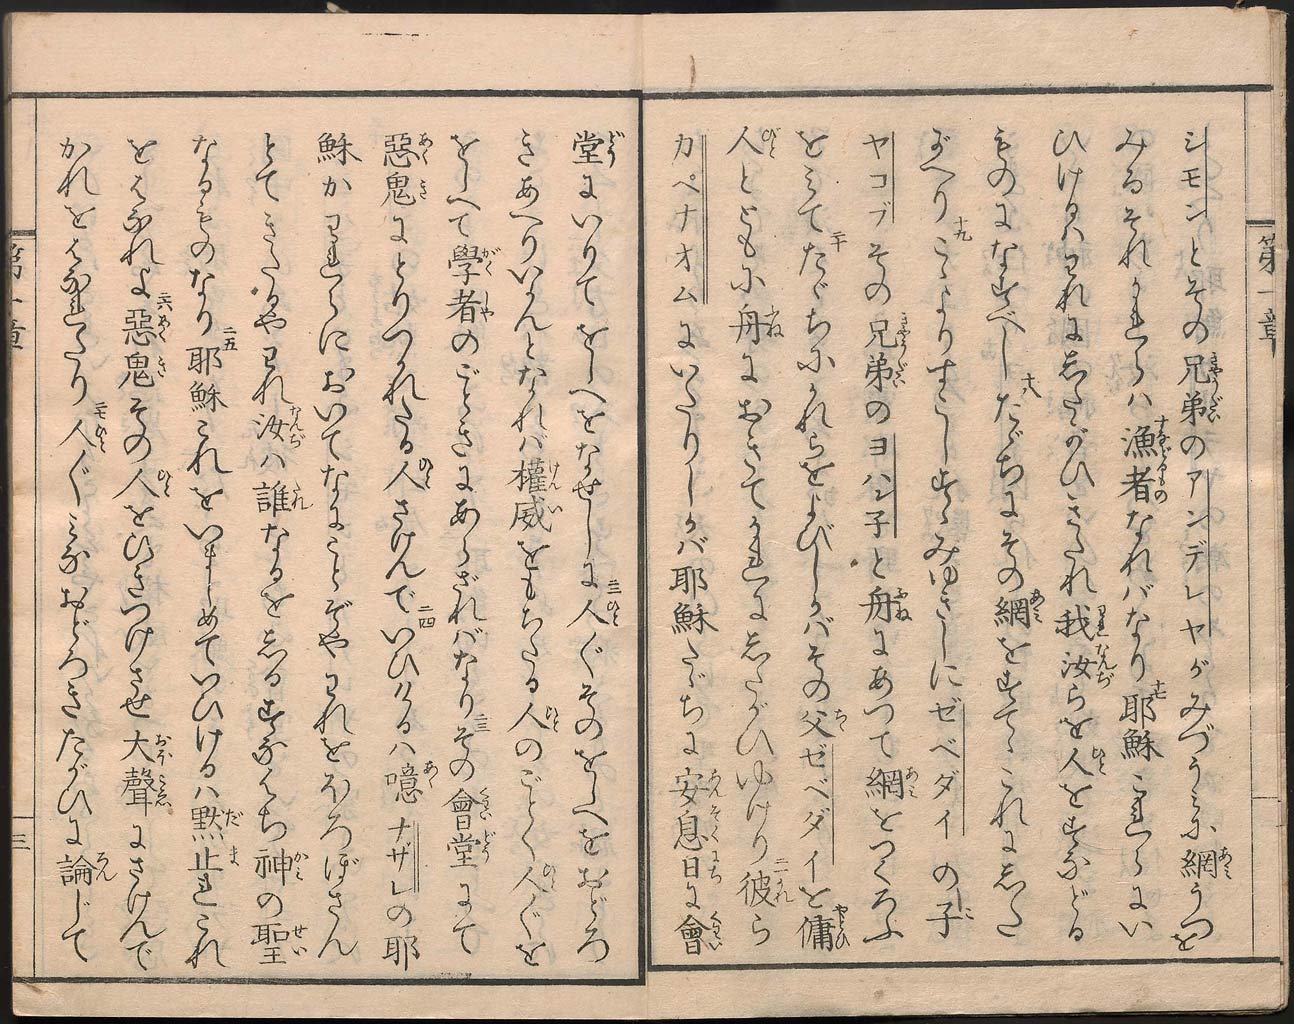 シモンとその兄弟のアンデレヤがみづうみに網うつを
みるそれかれらハ漁者なればバなり十七耶穌これらにい
ひけるハわれにしたがひきたれ我汝らを人をすなどる
ものになすべし十八たゞちにその網をすてゝこれにした
がへり十九こゝよりすこしすゝみゆきしにゼベダイの子
ヤコブその兄弟のヨハン子と舟にあつて網をつくろふ
をみて二十たゞちにかれらをよびしかバその父ゼベダイを傭
人とともに舟におきてかれにしたがひゆけり二一彼ら
カペナオムにいたりしかバ耶穌たゞちに安息日に會
堂にいりてをしへをなせしに二二人〱そのをしへをおどろ
きあへりいかんとなれバ權威をもちたる人のごとく人〱を
をしへて學者のごときにあらざれバなり二三その會堂にて
惡鬼にとりつかれたる人さけんで二四いひけるハ噫ナザレの耶
穌かわれらにおいてなにことぞやわれをほろぼさん
とてきたるやわれ汝ハ誰なるをしるすなはち神の聖
なるものなり二五耶穌これをいましめていひけるハ默止これ
をはなれよ二六惡鬼その人をひきつけさせ大聲にさけんで
かれをはなれたり二七人〱みなおどろきたがひに論じて
第一章
第一章
三